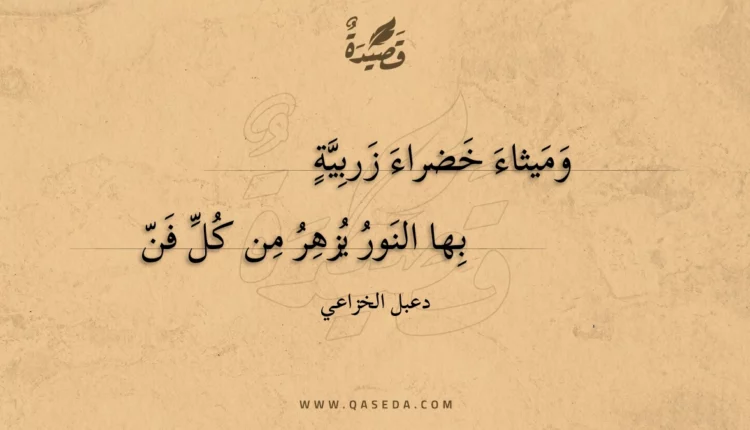 قَصِيْدَةٌ
وَمَيثاءَ خَضراءَ زَربِيَّةٍ
بِها النَورُ يُزهِرُ مِن كُلِّ فَنّ
دعبل الخزاعي
WWW.QASEDA.COM